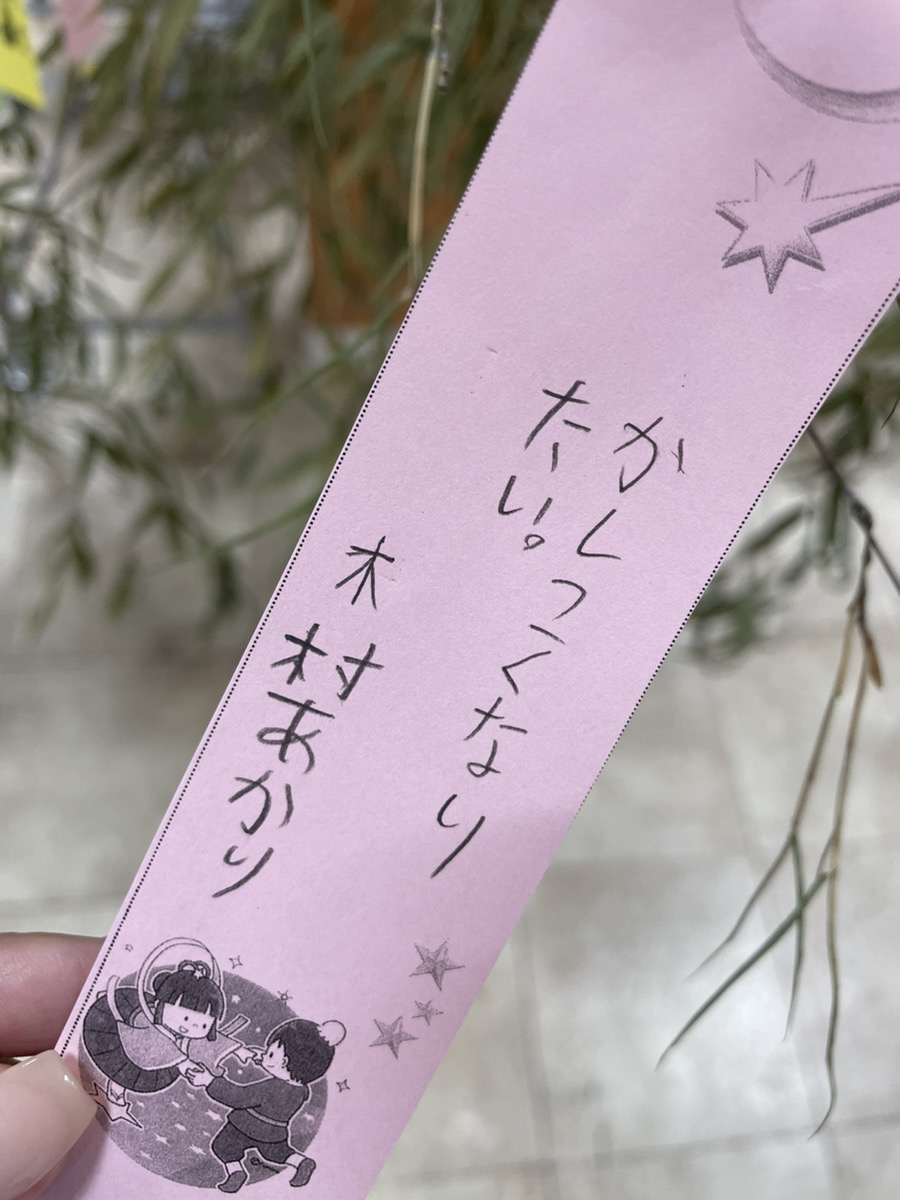 かしっこくなり
たい。
木村あかり